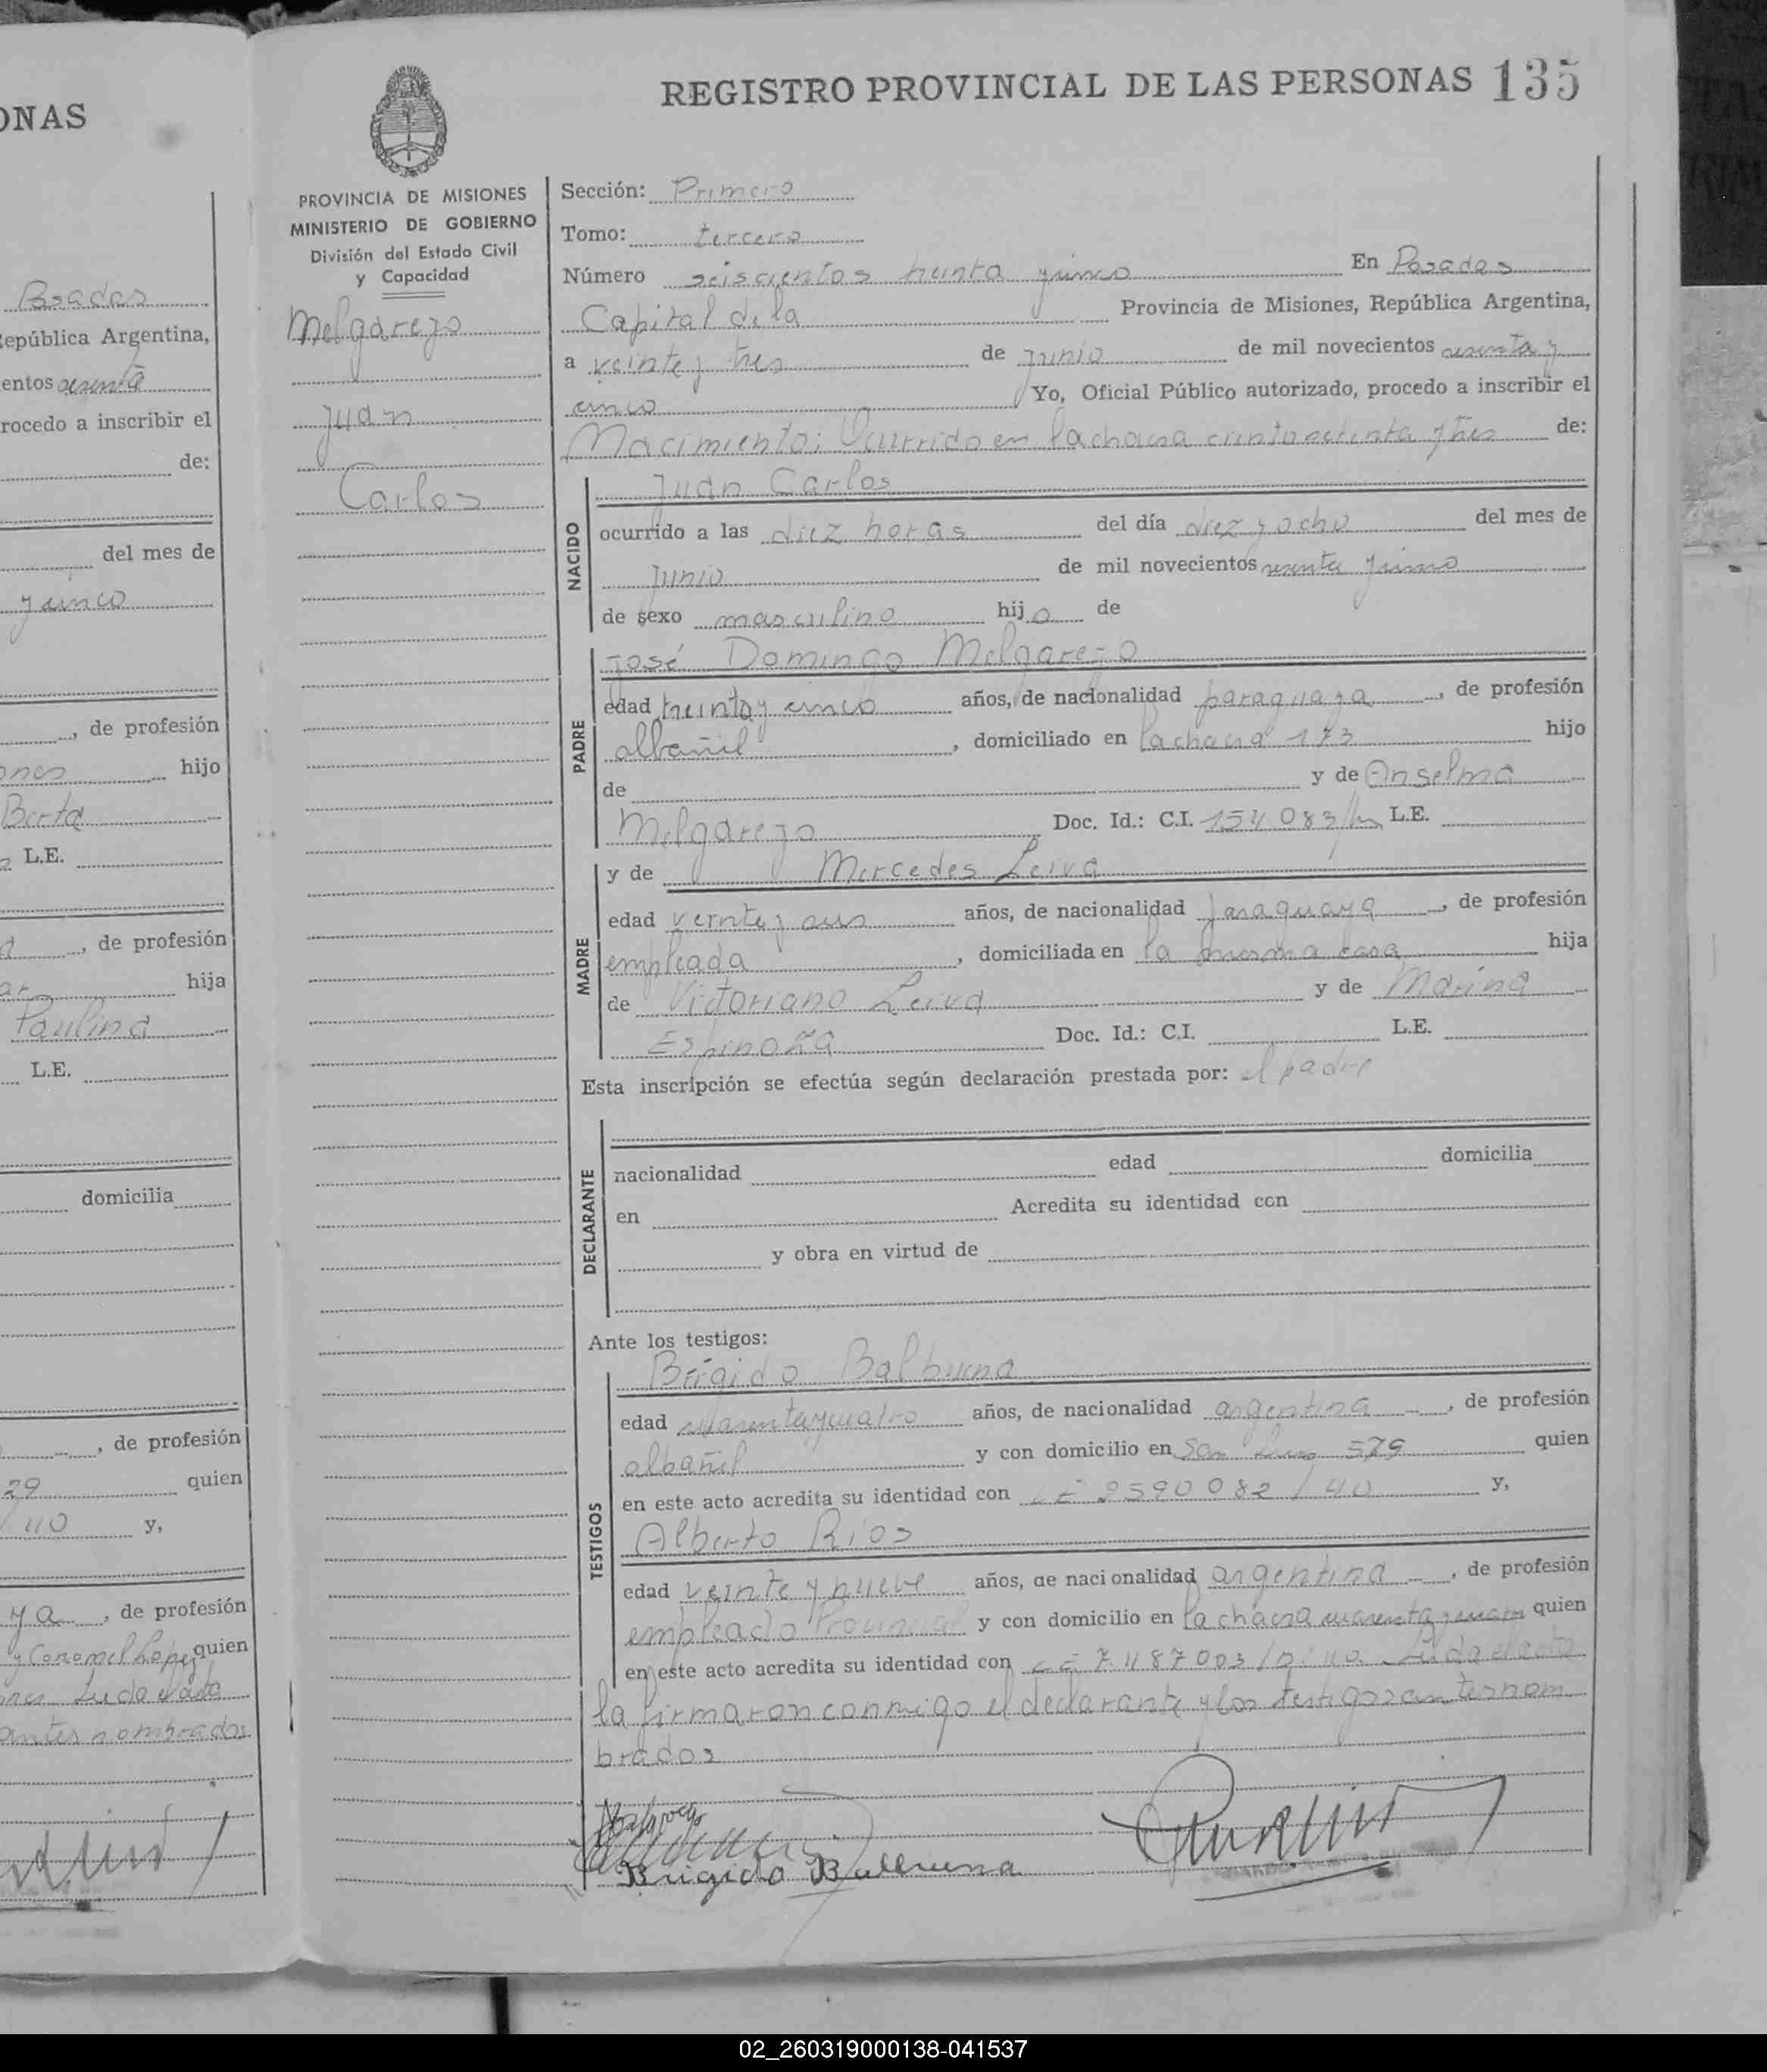 ONAS
Posadas
República Argentina,
entos sesenta
rocedo a inscribir el
de:
del mes de
y cinco
, de profesión
ones hijo
Berta
L.E.
, de profesión
ar hija
Paulina
L.E.
domicilia
, de profesión
29 quien
/ 40 y,
ya , de profesión
y Coronel López quien
Leida el acta
antes nombrados
REGISTRO PROVINCIAL DE LAS PERSONAS 135
PROVINCIA DE MISIONES
MINISTERIO DE GOBIERNO
División del Estado Civil
y Capacidad
Melgarejo
Juan
Carlos
Sección: Primero
Tomo: tercero
Número seiscientos treinta y cinco En Posadas
Capital de la Provincia de Misiones, República Argentina,
a veinte y tres de junio de mil novecientos sesenta y
cinco Yo, Oficial Público autorizado, procedo a inscribir el
Nacimiento: Ocurrido en la chacra ciento setenta y tres de:
NACIDO
Juan Carlos
ocurrido a las diez horas del día diez y ocho del mes de
junio de mil novecientos sesenta y cinco
de sexo masculino hijo de
PADRE
José Domingo Melgarejo
edad treinta y cinco años, de nacionalidad paraguaya , de profesión
albañil , domiciliado en la chacra 173 hijo
de y de Anselma
Melgarejo Doc. Id.: C.I. 154083 L.E.
MADRE
y de Mercedes Leiva
edad veinte y seis años, de nacionalidad paraguaya , de profesión
empleada , domiciliada en la misma casa hija
de Victoriano Leiva y de Marina
Espinoza Doc. Id.: C.I. L.E.
Esta inscripción se efectúa según declaración prestada por: el padre
DECLARANTE
nacionalidad edad domicilia
en Acredita su identidad con
y obra en virtud de
Ante los testigos:
TESTIGOS
Brígido Balbuena
edad cuarenta y cuatro años, de nacionalidad argentina , de profesión
albañil y con domicilio en San Luis 579 quien
en este acto acredita su identidad con LE 2590082 / 40 y,
Alberto Rios
edad veinte y nueve años, de nacionalidad argentina , de profesión
empleado Provincial y con domicilio en la chacra cuarenta y cuatro quien
en este acto acredita su identidad con LE 7487003 Leida el acta
la firmaron conmigo el declarante y los testigos antes nom
brados
Brigido Balbuena
02_260319000138-041537